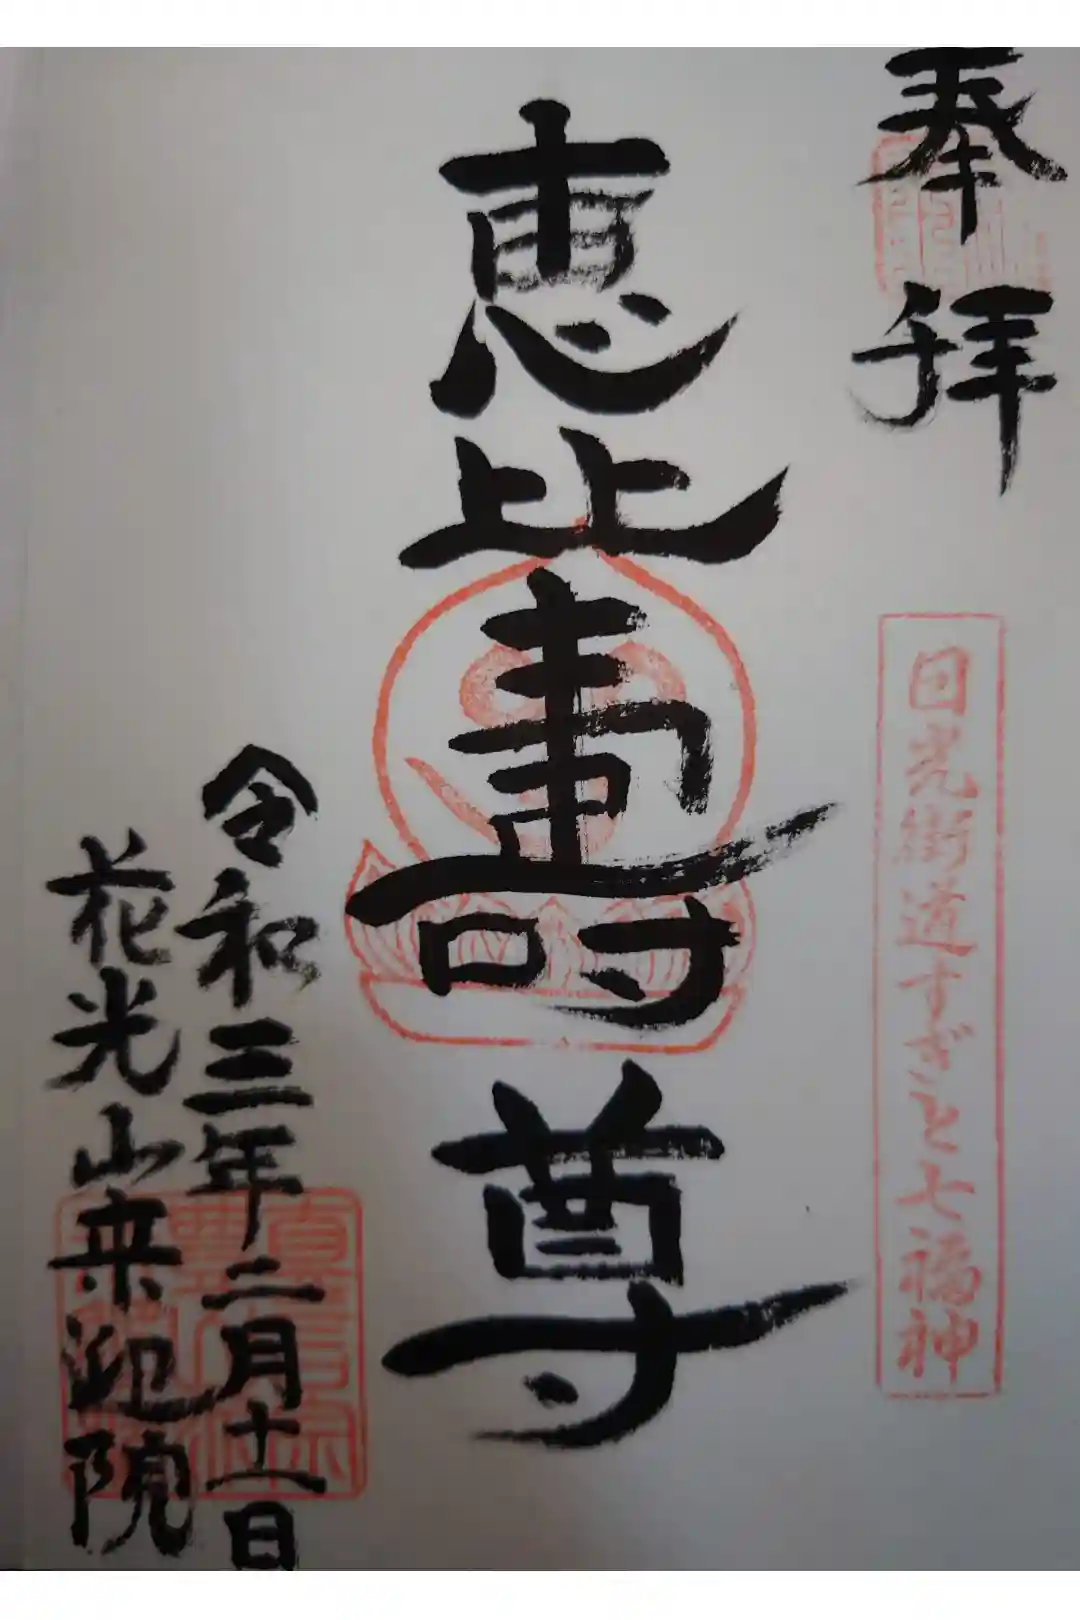 奉拝
日光街道すぎと七福神
恵比寿尊
令和三年二月十一日
花光山来迎院